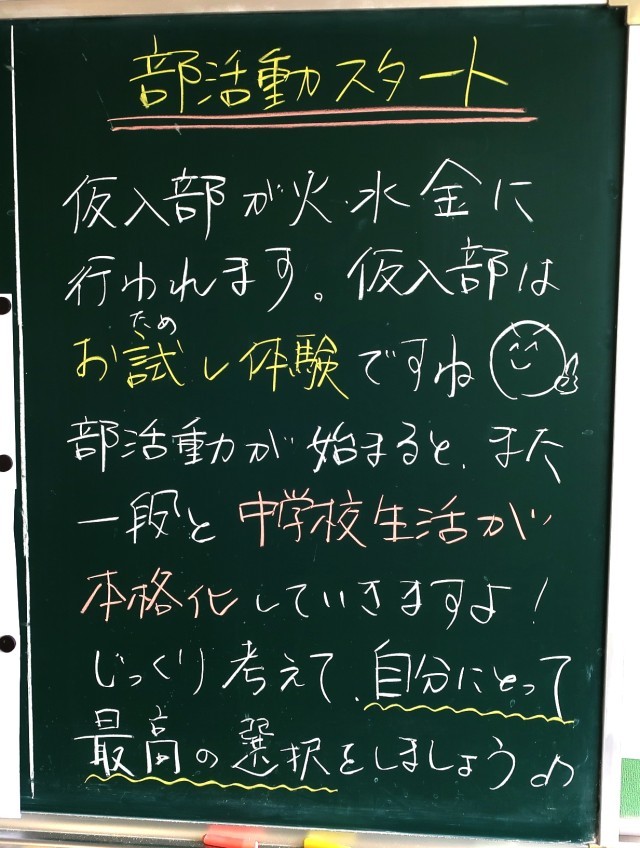 部活動スタート
仮入部が火.水金に
行われます。仮入部は
ため
お試し体験ですね
部活動が始まると、また
一段と中学校生活が
本格化していきますよ!
じっくり考えて、自分にとって
最高の選択をしましょう♪